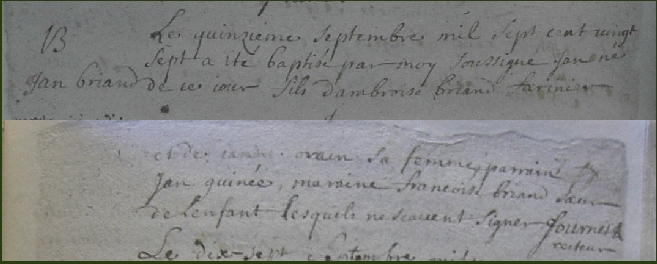 B Le quinzieme septembre mil sept cent vingt
sept a été baptisé par moy soussigné Jan né
Jan briand de ce jour fils d'ambroise briand
et de orain sa femme, parrain
Jan quinée, maraine francoise briand sœur
de l'enfant lesquels ne scavent signer fournier
recteur
Le dix sept septembre mil